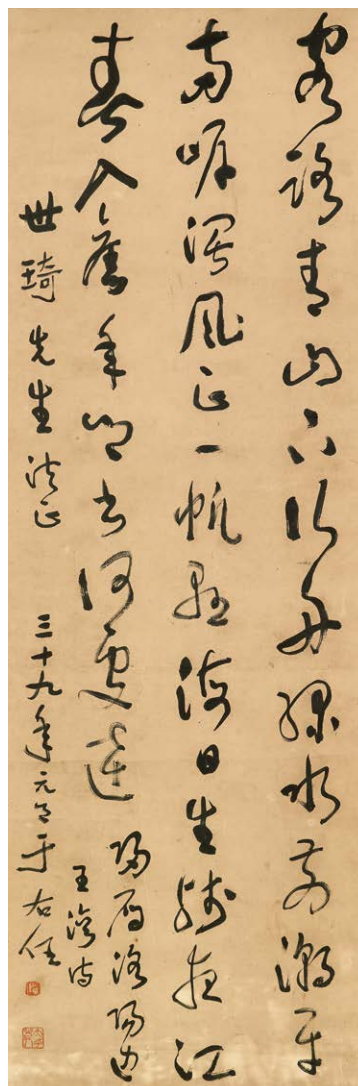 客路青山下行舟綠水前潮平
兩岸濶風正一帆懸海日生殘夜江
春入舊年鄉書何處達
歸雁洛陽邊
王灣詩
世琦先生法正
三十九年元 于右任